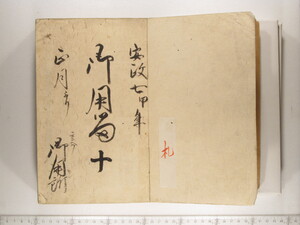 安政七申年
御用留
十
正月より
御用部
札